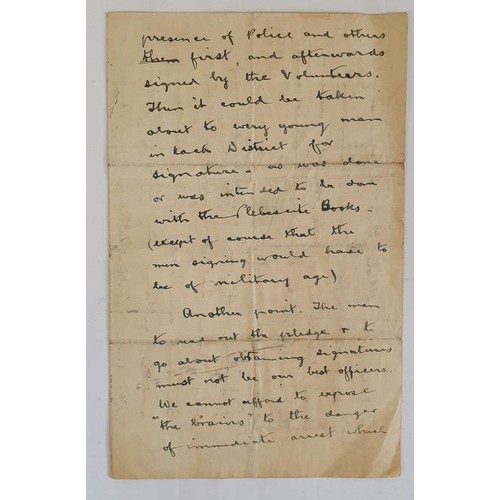 presence of Police and others
them first, and afterwards
signed by the Volunteers.
Then it could be taken
about to every young man
in each District for
signature - as was done
or was intended to be done
with the Plebescite Books -
(except of course that the
men signing would have to
be of military age)
Another point. The men
to read out the pledge & to
go about obtaining signatures
must not be our best officers.
We cannot afford to expose
"the brains" to the danger
of immediate arrest which